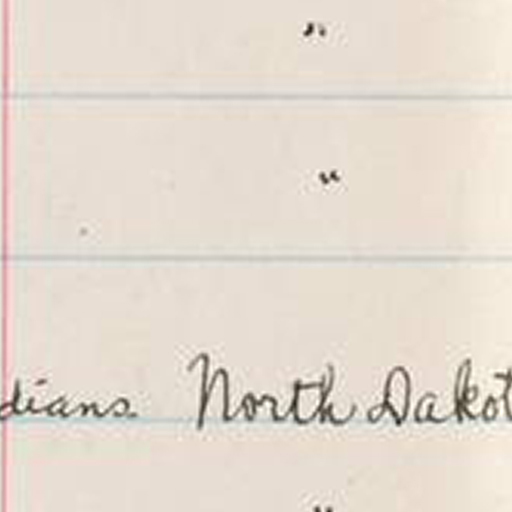 "
"
dians North Dakot
"